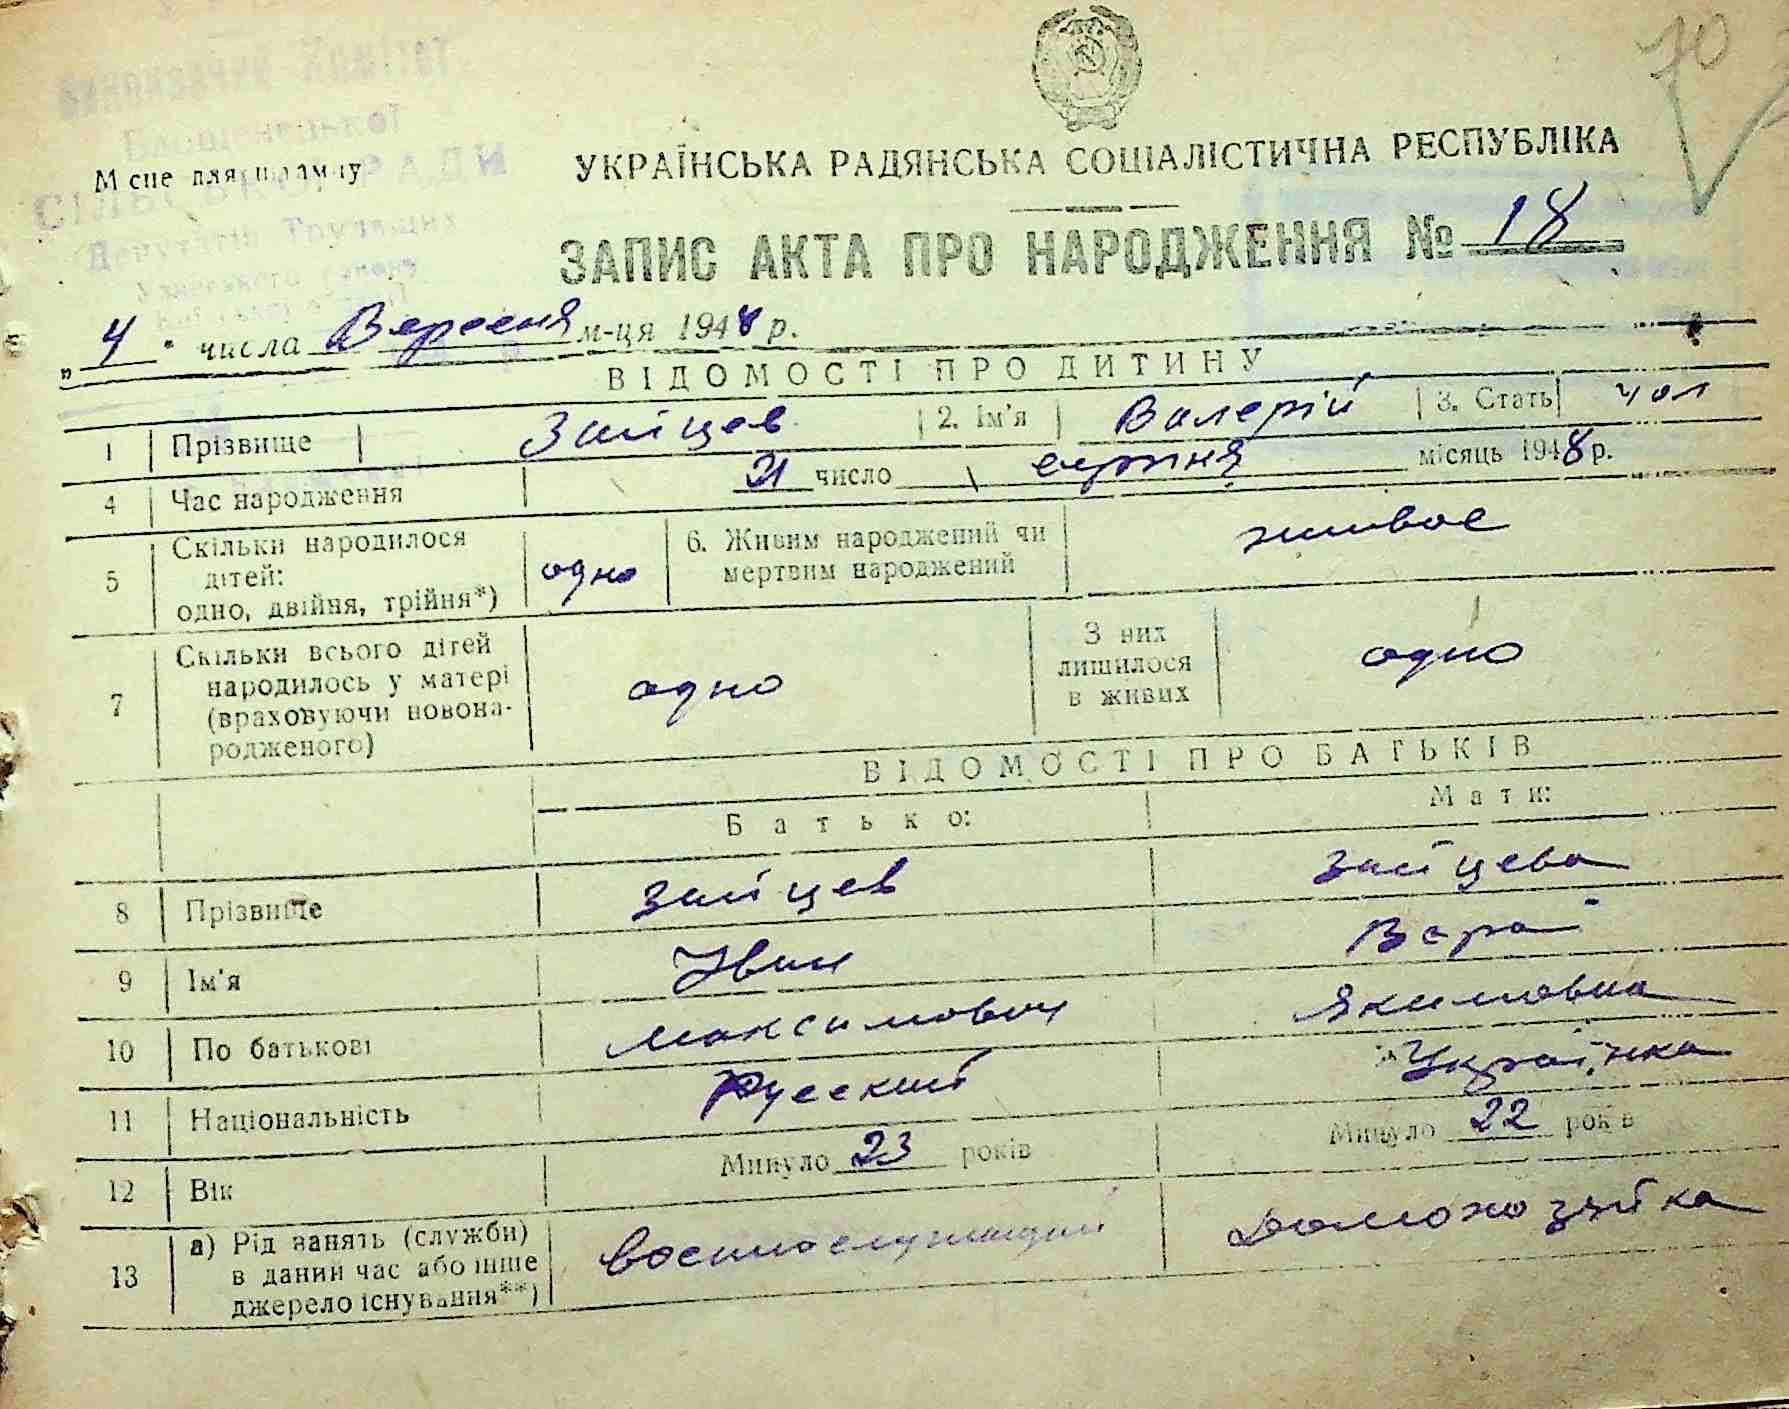 70
Виконавчий Комітет
СІЛЬСЬКОЇ РАДИ
Депутатів Трудящих
Місце для штампу
УКРАЇНСЬКА РАДЯНСЬКА СОЦІАЛІСТИЧНА РЕСПУБЛІКА
ЗАПИС АКТА ПРО НАРОДЖЕННЯ № 18
„ 4 " числа Вересня м-ця 1948 р.
ВІДОМОСТІ ПРО ДИТИНУ
1 Прізвище Зайцев 2. Ім'я Валерій 3. Стать чол
4 Час народження 21 число серпня місяць 1948 р.
5 Скільки народилося дітей: одно, двійня, трійня*) одно 6. Живим народжений чи мертвим народжений живое
7 Скільки всього дітей народилось у матері (враховуючи новонародженого) одно З них лишилося в живих одно
ВІДОМОСТІ ПРО БАТЬКІВ
Батько: Мати:
8 Прізвище Зайцев Зайцева
9 Ім'я Іван Вера
10 По батькові Максимович Якимовна
11 Національність Русский Українка
12 Вік Минуло 23 років Минуло 22 років
13 а) Рід занять (служби) в даний час або інше джерело існування**) военнослужащий Домохозяйка